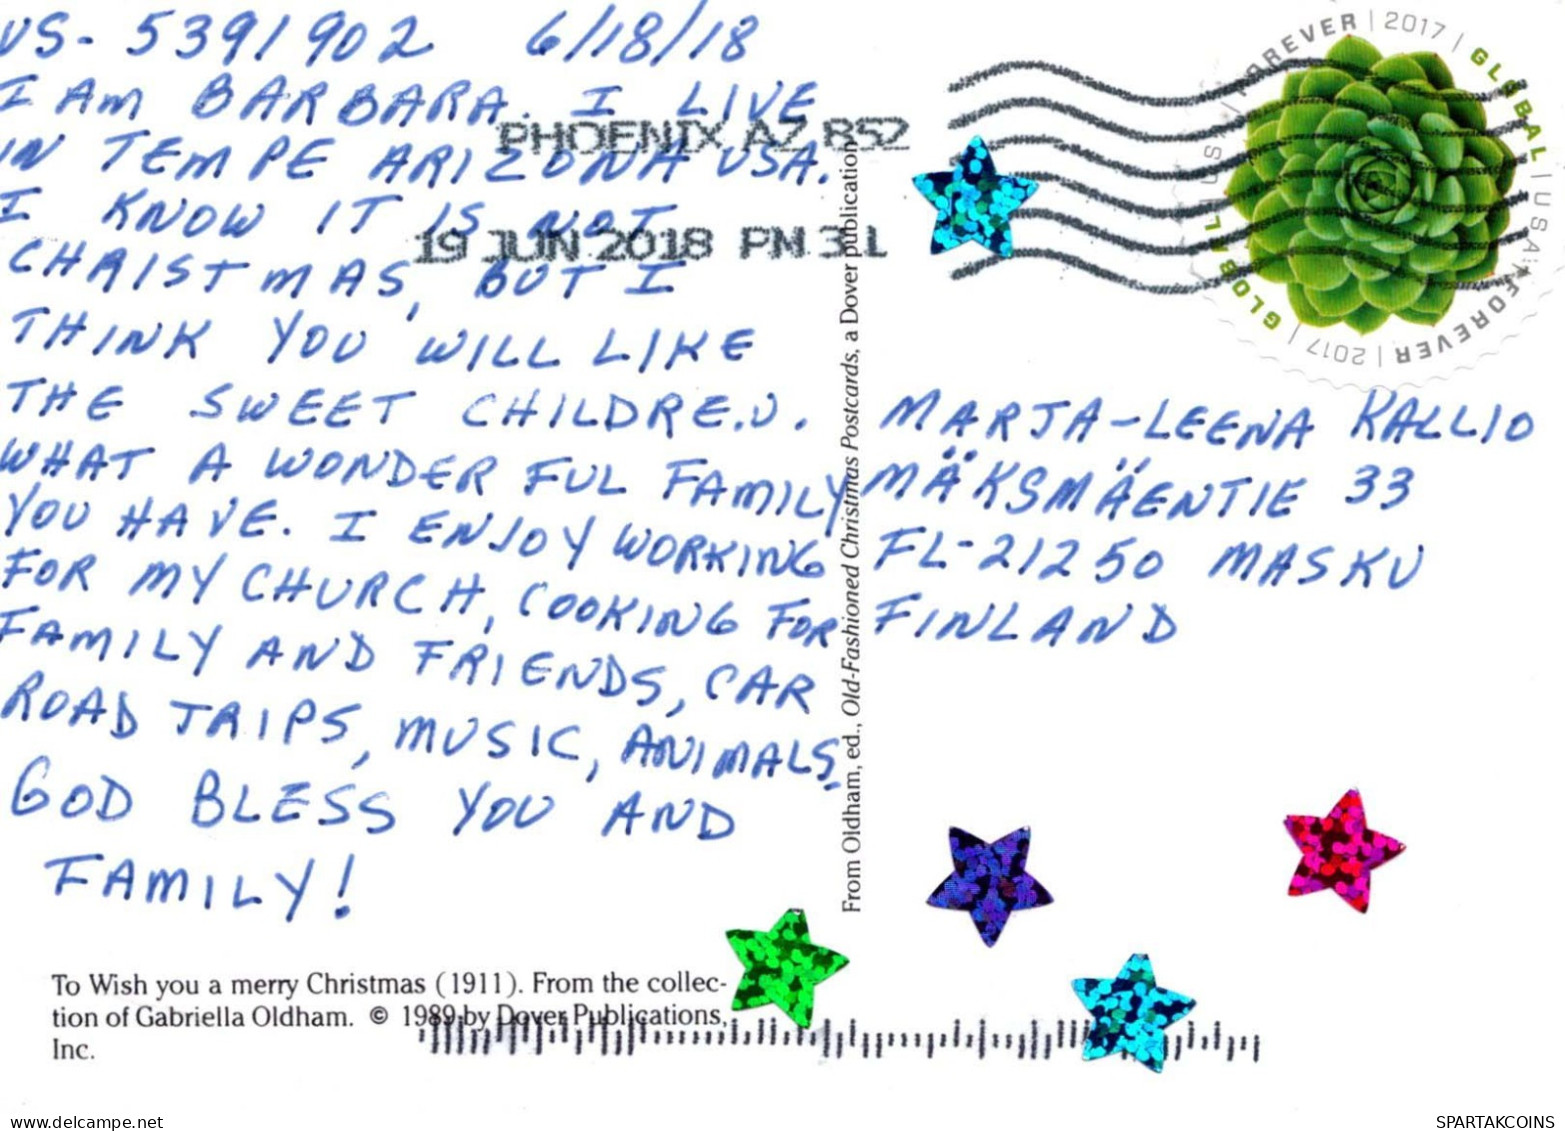 US-5391902 6/18/18
I AM BARBARA. I LIVE
IN TEMPE ARIZONA USA.
I KNOW IT IS NOT
CHRISTMAS, BUT I
THINK YOU WILL LIKE
THE SWEET CHILDREN.
WHAT A WONDERFUL FAMILY
YOU HAVE. I ENJOY WORKING
FOR MY CHURCH, COOKING FOR
FAMILY AND FRIENDS, CAR
ROAD TRIPS, MUSIC, ANIMALS.
GOD BLESS YOU AND
FAMILY!
To Wish you a merry Christmas (1911). From the collec-
tion of Gabriella Oldham. © 1989 by Dover Publications,
Inc.
From Oldham, ed., Old-Fashioned Christmas Postcards, a Dover publication
PHOENIX AZ 852
19 JUN 2018 PM 3 L
GLOBAL | USA | FOREVER | 2017 | GLOBAL | USA | FOREVER | 2017 |
MARJA-LEENA KALLIO
MÄKSMÄENTIE 33
FL-21250 MASKU
FINLAND
www.delcampe.net
SPARTAKCOINS